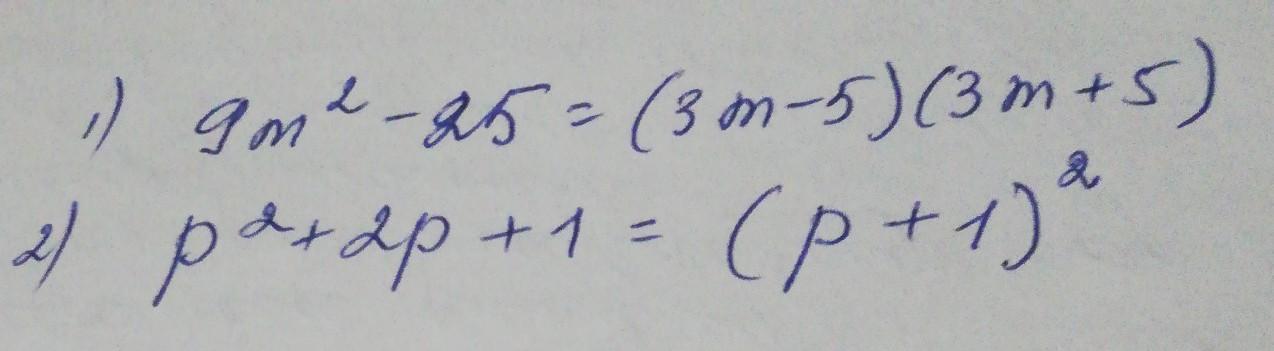 1) 9m² - 25 = (3m-5)(3m+5)
2) p² + 2p + 1 = (p+1)²